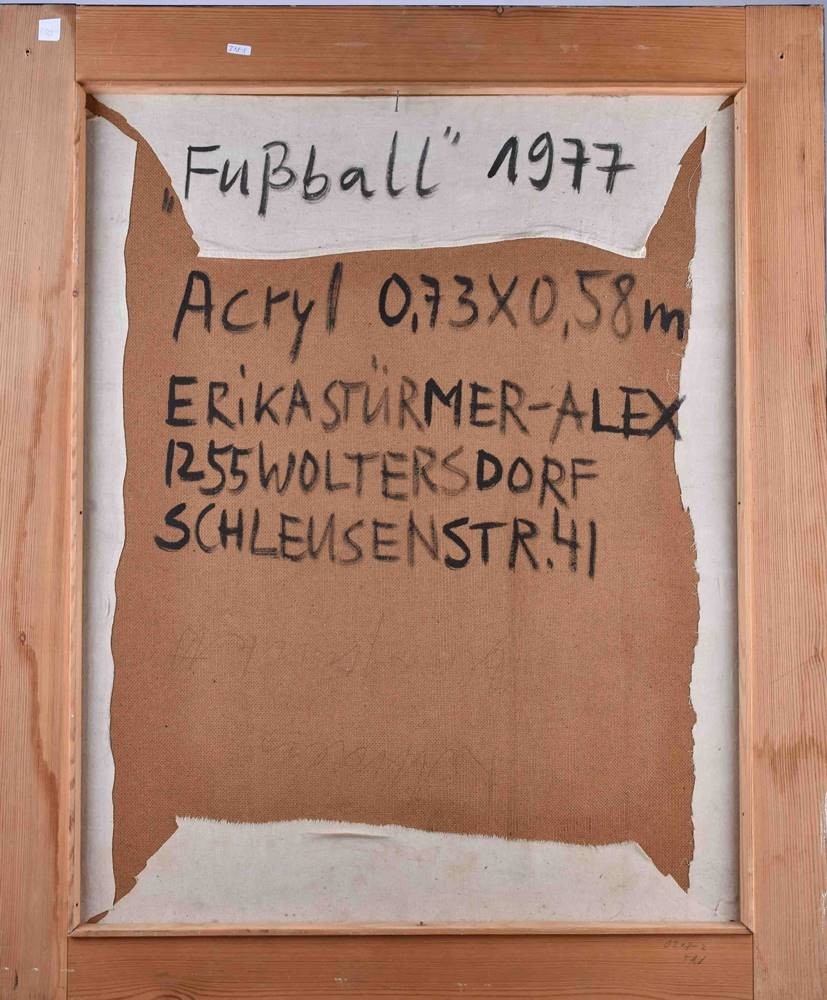 „Fußball" 1977
Acryl 0,73X0,58m
ERiKA STÜRMER-ALEX
1255 WOLTERSDORF
SCHLEUSENSTR. 41